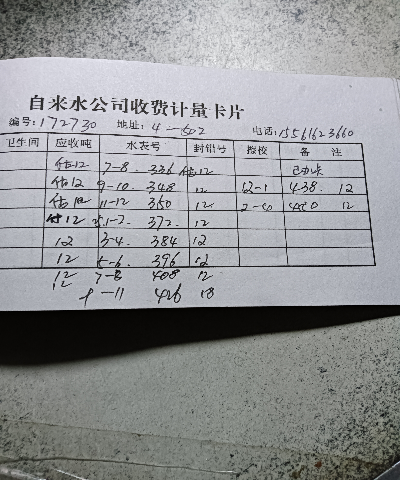 自来水公司收费计量卡片
编号:172730 地址: 4-502 电话:15561623660
卫生间 应收吨 水表号 封铅号 换校 备 注
估12 7-8. 336 估12
估12 9-10. 348 12 12-1 438. 12
估12 11-12 360 12 2-40 450 12
估12 1-2. 372. 12
12 3-4. 384 12
12 5-6. 396 12
12 7-8 408 12
12 9-11 426 18